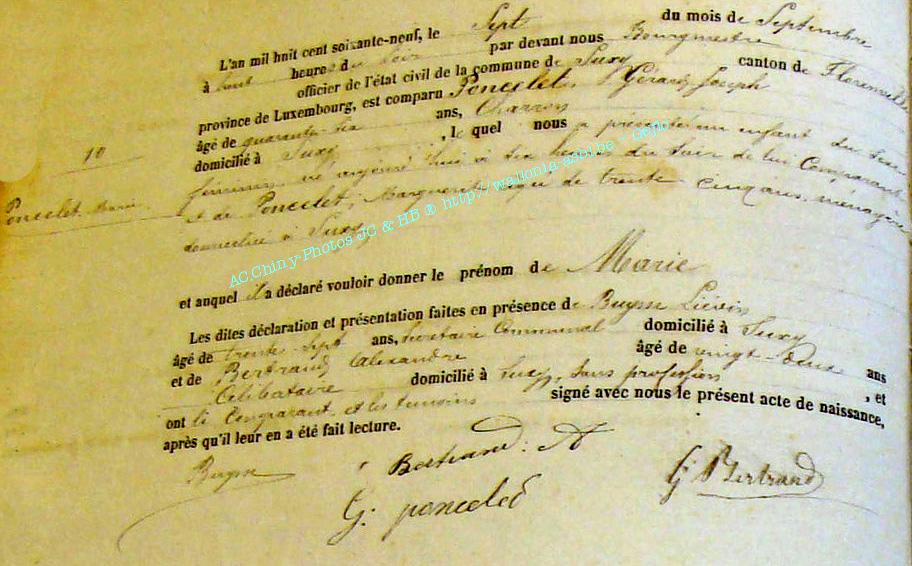 L'an mil huit cent soixante-neuf, le Sept du mois de Septembre
à huit heures du soir par devant nous Bourgmestre
officier de l'état civil de la commune de Suxy canton de Florenville
province de Luxembourg, est comparu Poncelet, Gérard Joseph
âgé de quarante-six ans, Charron
domicilié à Suxy, le quel nous a présenté un enfant du sexe
féminin né aujourd'hui à six heures du soir de lui Comparant
et de Poncelet, Marguerite, agée de trente cinq ans, ménagère
domiciliée à Suxy
10
Poncelet, Marie
AC.Chiny-Photos JC & HB ® http://wallonia-asbl.be -
et auquel il a déclaré vouloir donner le prénom de Marie
Les dites déclaration et présentation faites en présence de Buyse Liévin
âgé de trente-sept ans, secrétaire Communal domicilié à Suxy
et de Bertrand Alexandre âgé de vingt-deux ans
Célibataire domicilié à Suxy, sans profession, et
ont le Comparant et les témoins signé avec nous le présent acte de naissance,
après qu'il leur en a été fait lecture.
Buyse Bertrand. A G Bertrand
G. poncelet